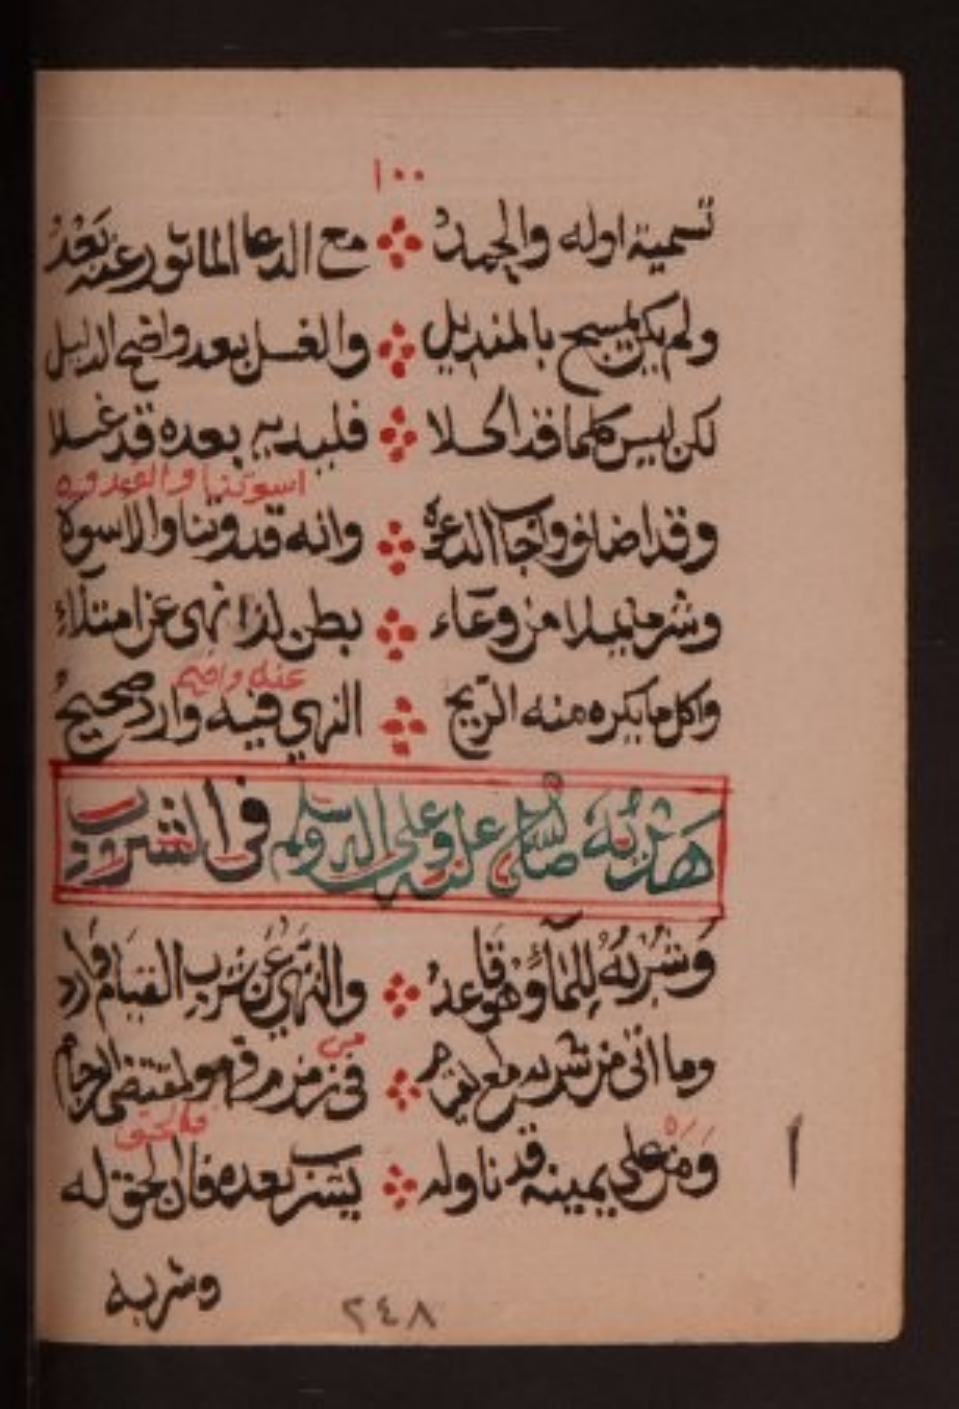 ١٠٠
تسمية اوله والحمدُ مع الدعا الماثور عنه بَعْدُ
ولم يكن يمسح بالمنديل والغسل بعد واضح الدليل
لكن ليس كلما قد اكلا فلبيديه بعده قد غسلا
اسوتنا والقدوه
وقد اضافو واجاب الدعوه وانه قدوتنا والاسوة
وشر ما يملا من وعَاء بطن لذا نهى عن امتلاءِ
عنه واضح
واكل ما يكره منه الريح النهي فيه وارد صحيحُ
شربه صلى الله عليه وعلى اله وسلم في المشروب
وَشُرْبُهُ لِلمَاْ وَهْوَ قَاعدُ والنَهْي عَنْ شرب القيام وَارد
من
وما اتى من شربه مع في زمزم فهو لمقتضى
فالحق
وَمَنْ على يمينه قد ناوله يشرب بعده فان الحق له
وشربه
٢٤٨